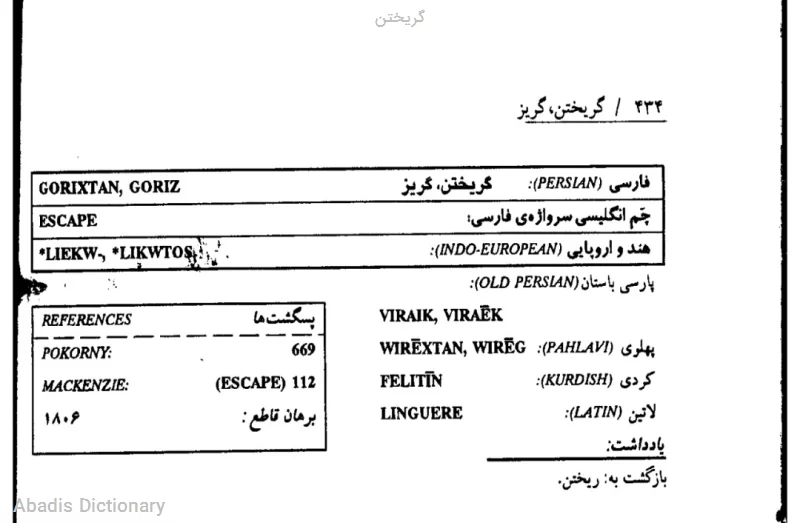 گریختن
۴۳۴ / گریختن، گریز
فارسی (PERSIAN): گریختن، گریز GORIXTAN, GORIZ
چَم انگلیسی سرواژه‌ی فارسی: ESCAPE
هند و اروپایی (INDO-EUROPEAN): *LIEKW-, *LIKWTOS
پارسی باستان (OLD PERSIAN):
VIRAIK, VIRAĒK
پهلوی (PAHLAVI): WIRĒXTAN, WIRĒG
کردی (KURDISH): FELITĪN
لاتین (LATIN): LINGUERE
یادداشت:
بازگشت به: ریختن.
پسگشت‌ها REFERENCES
POKORNY: 669
MACKENZIE: (ESCAPE) 112
برهان قاطع: ۱۸۰۶
Abadis Dictionary